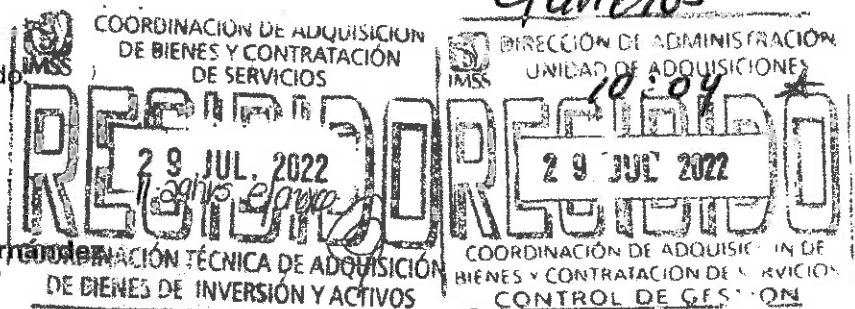 COORDINACIÓN DE ADQUISICIÓN
DE BIENES Y CONTRATACIÓN
DE SERVICIOS
IMSS
do.
RECIBIDO
29 JUL. 2022
rnández
COORDINACIÓN TÉCNICA DE ADQUISICIÓN
DE BIENES DE INVERSIÓN Y ACTIVOS
DIRECCIÓN DE ADMINISTRACIÓN
UNIDAD DE ADQUISICIONES
IMSS
10:04
RECIBIDO
29 JUL 2022
COORDINACIÓN DE ADQUISICIÓN DE
BIENES Y CONTRATACIÓN DE SERVICIOS
CONTROL DE GESTIÓN